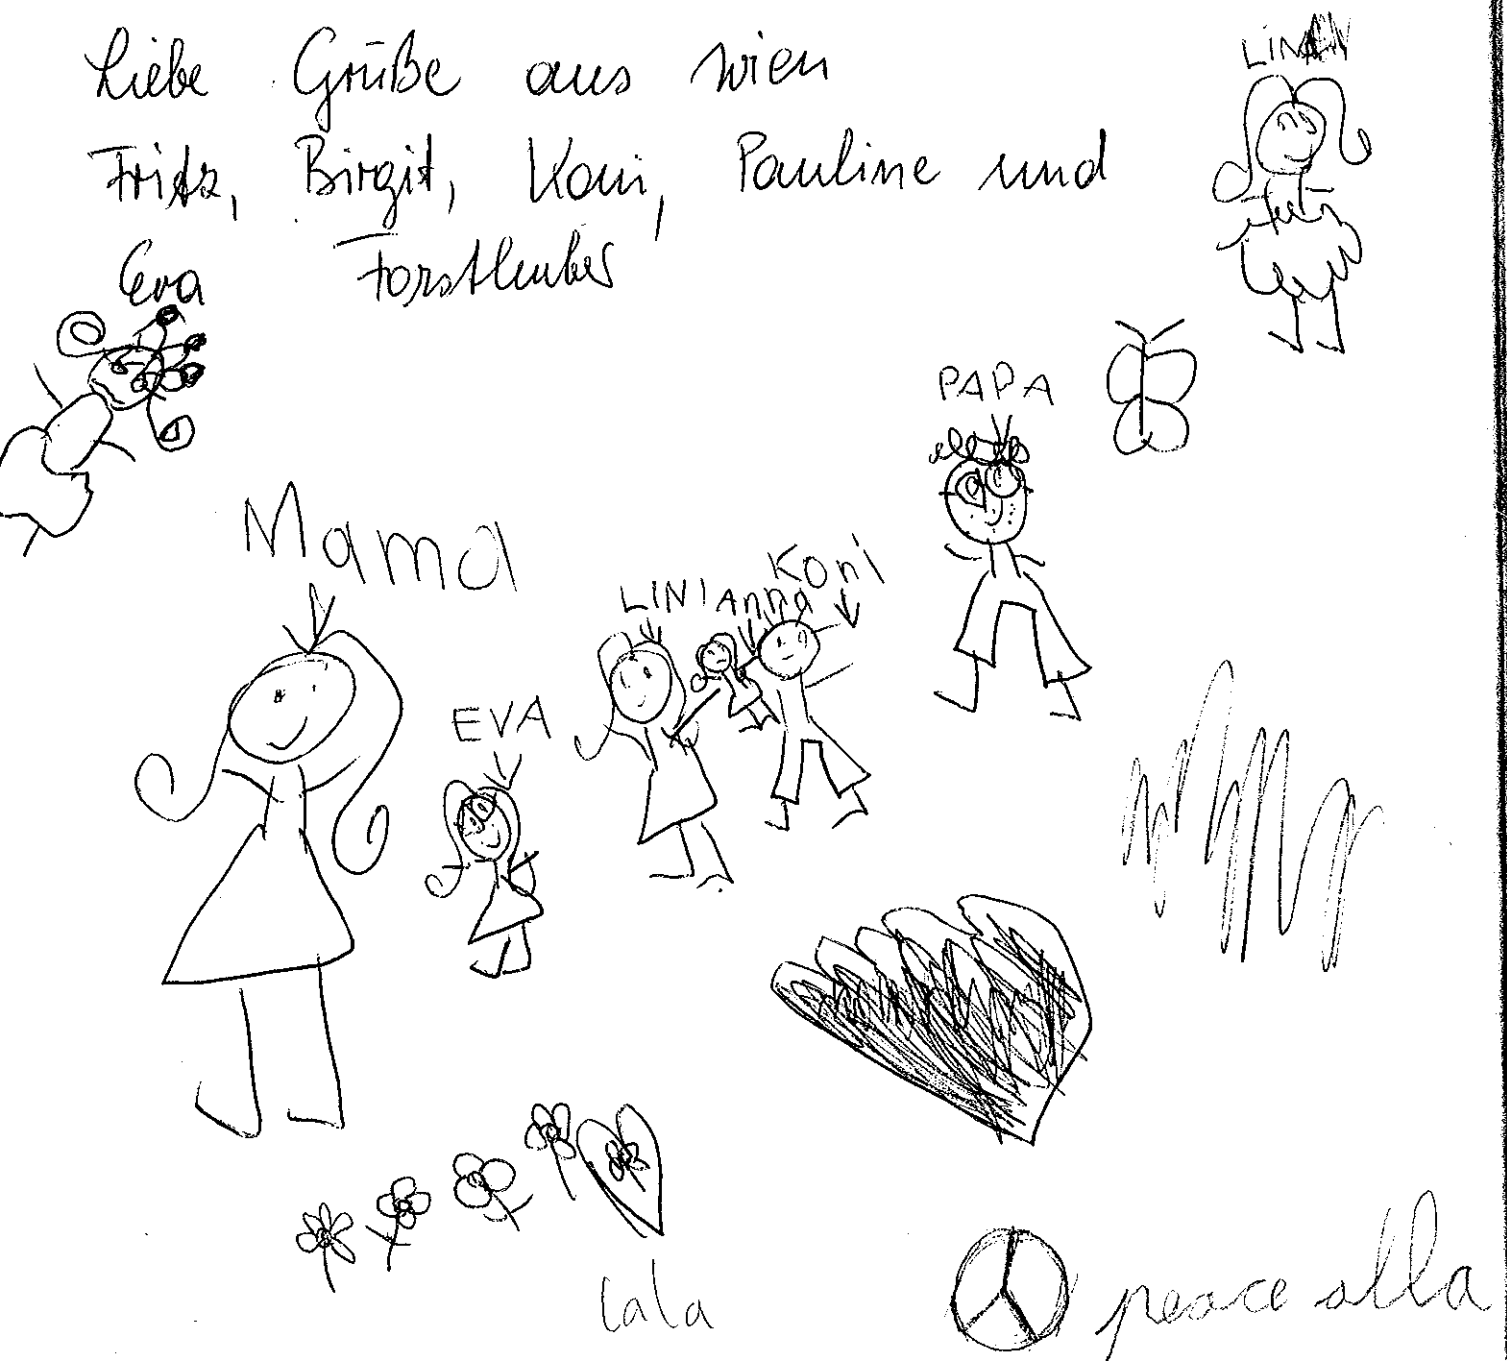 Liebe Grüße aus Wien
Fritz, Birgit, Koni, Pauline und
Eva Forsthuber
PAPA
Mama
Koni
LINI Anna
EVA
lala
peace alla